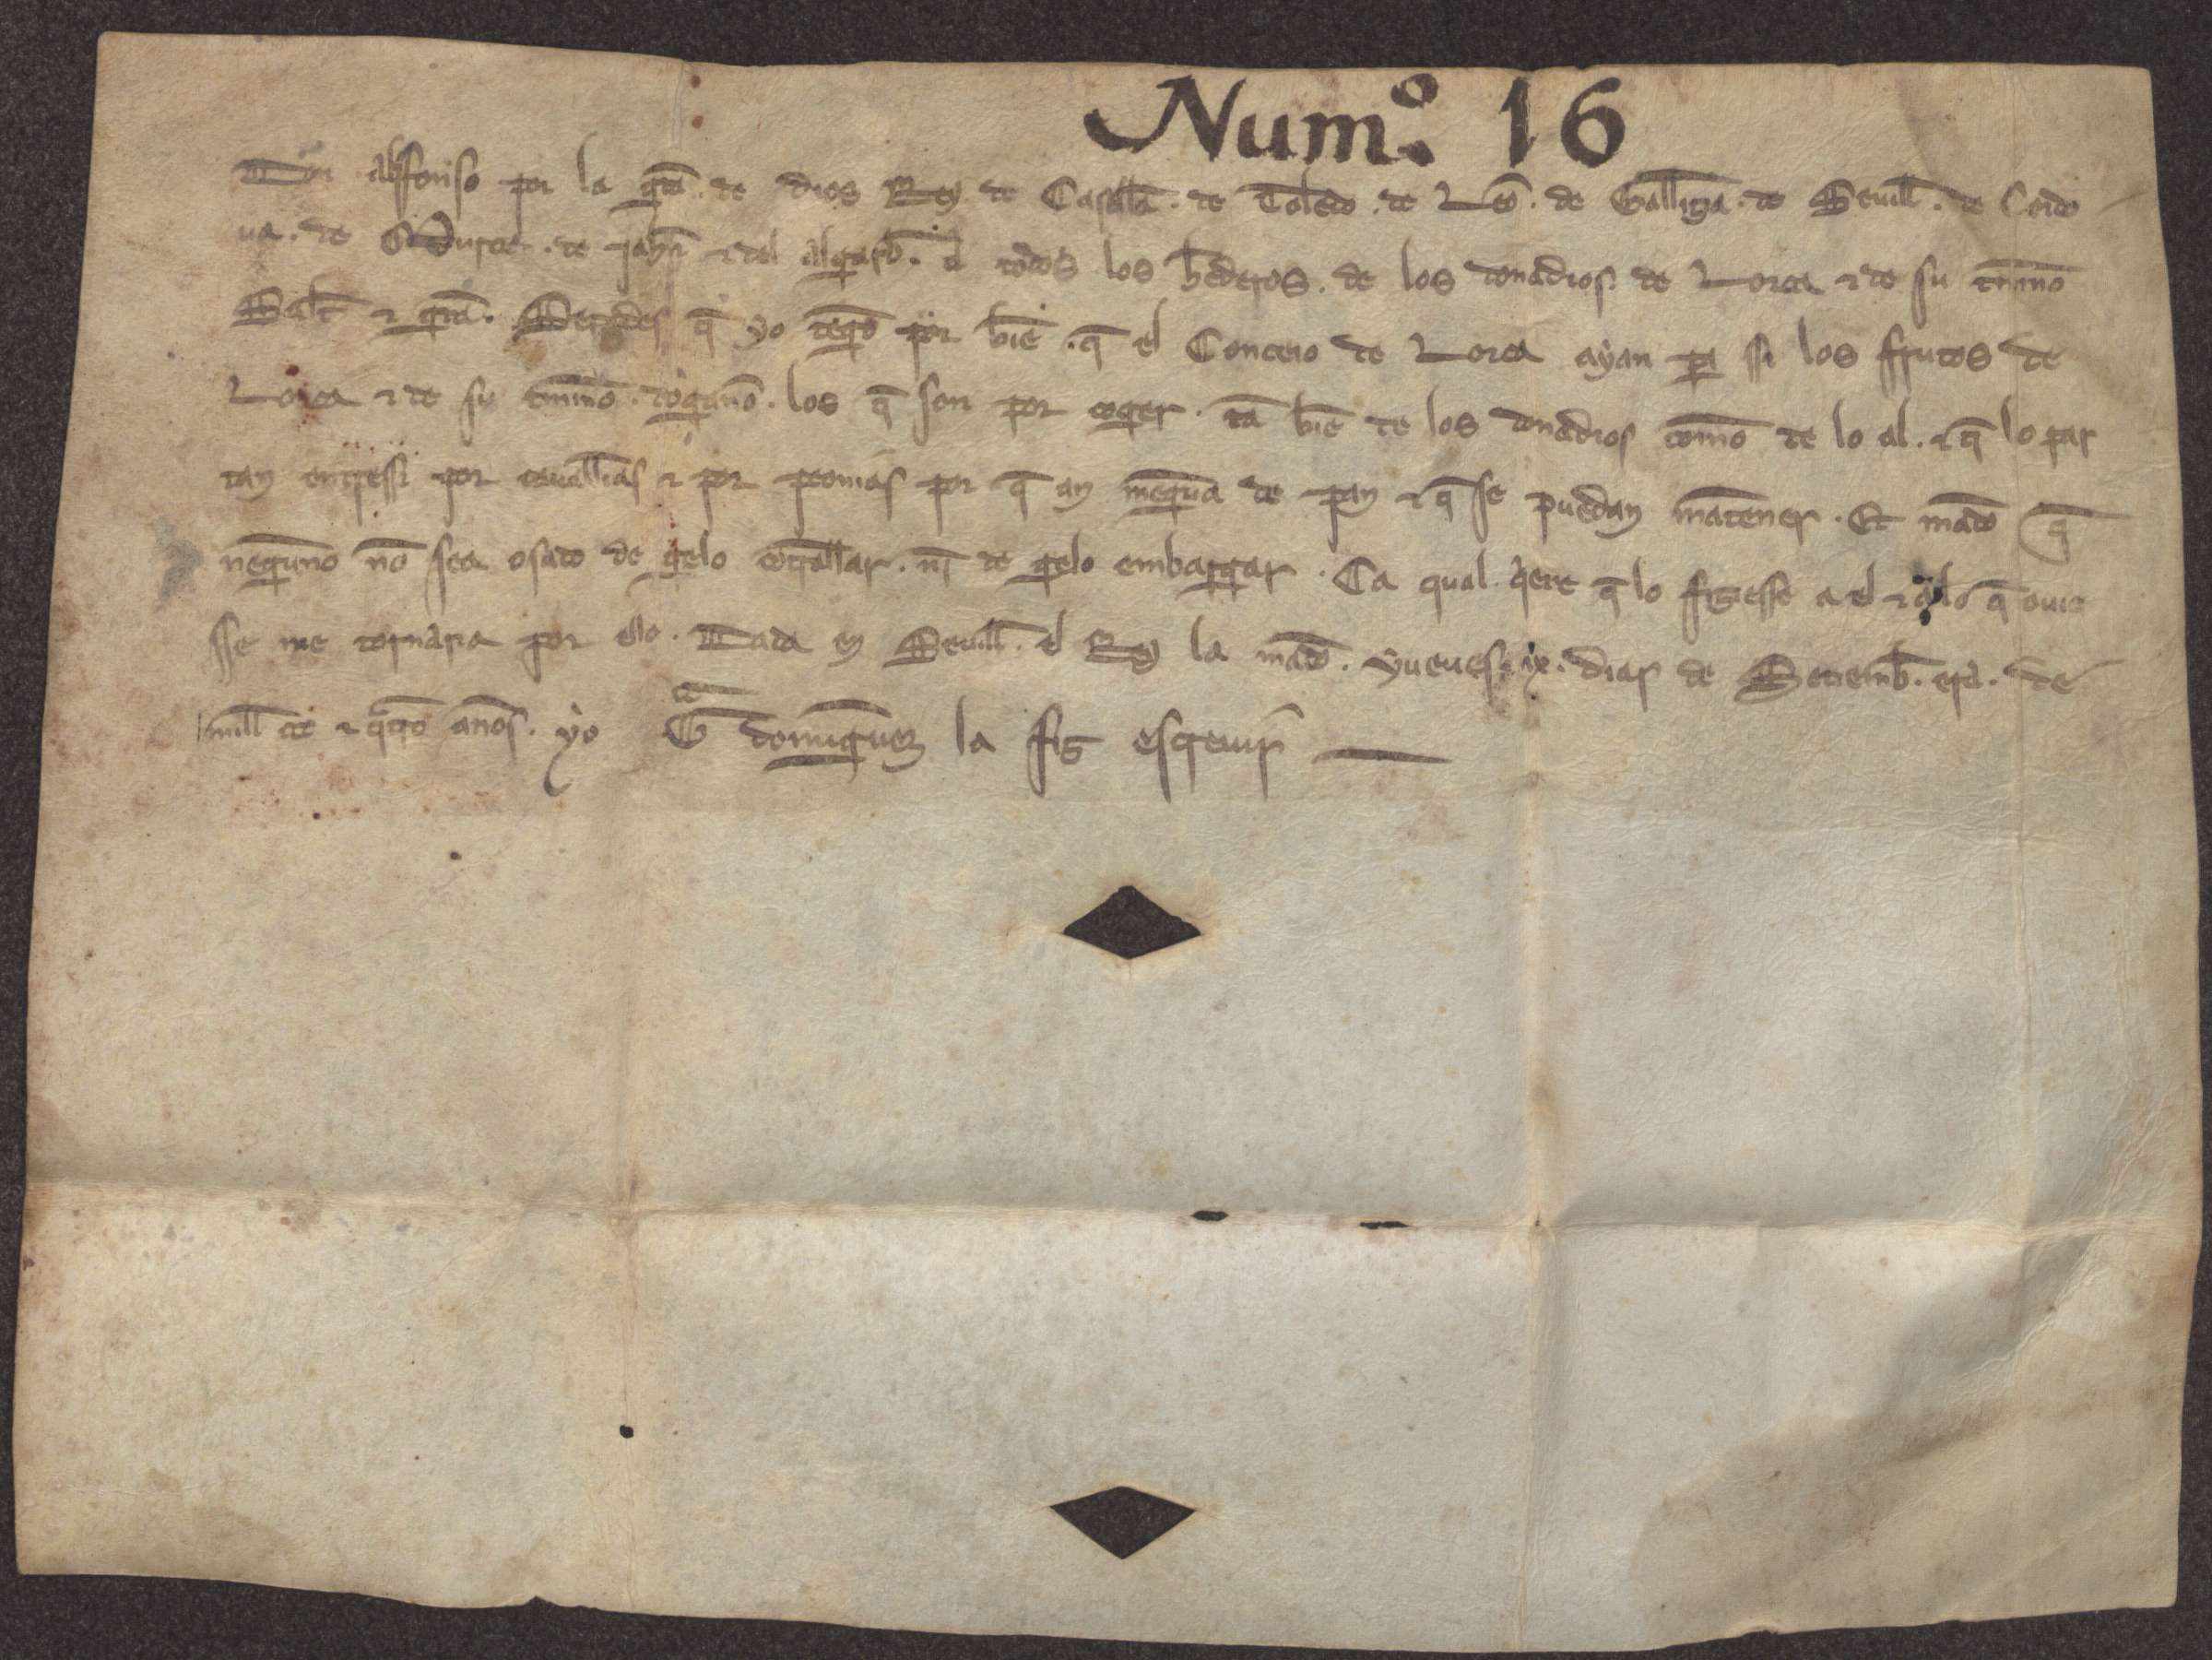 Num.º 16
Don alffonso por la gra. de dios Rey de Castiella. de Toledo. de Leō. de Gallizia. de Seuill. de Cordo
ua. de Murcia. de Jahn̄ ⁊ del algarb. a todos los hederos. de los donadios de Lorca ⁊ de su tmino
Salt ⁊ gra. Sepades q̄ yo tēgo por biē. q̄ el Conceio de Lorca ayan pa ssi los frutos de
Lorca ⁊ de su tmino. dogano. los q̄ son por coger. tā biē de los donadios como de lo al. ⁊ q̄ lo par
tan entressi por cauallias ⁊ por peonias por q̄ an mēgua de pan ⁊ q̄ se puedan mātener. Et mādo q̄
neguno nō sea osado de gelo cōtrallar. nī de gelo embargar. Ca qual qere q̄ lo fiziesse a el ⁊ a lo q̄ ouie
sse me tornaria por ello. Dada en Seuill. el Rey la mādo. yueues. ix. dias de Setiemb. era. de
mill ⁊ ccc ⁊ quatro annos. yo G domīguez la fiz escreuir